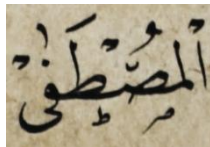 الْمُصْطَفَىٰ